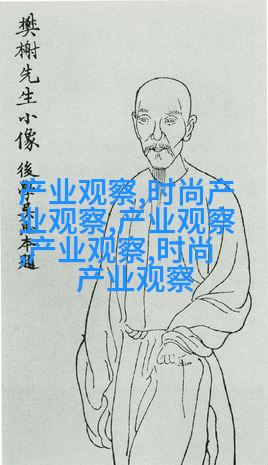 樊榭先生小像
後學
本題
产业观察,时尚产
业观察,产业观察
产业观察,时尚
产业观察